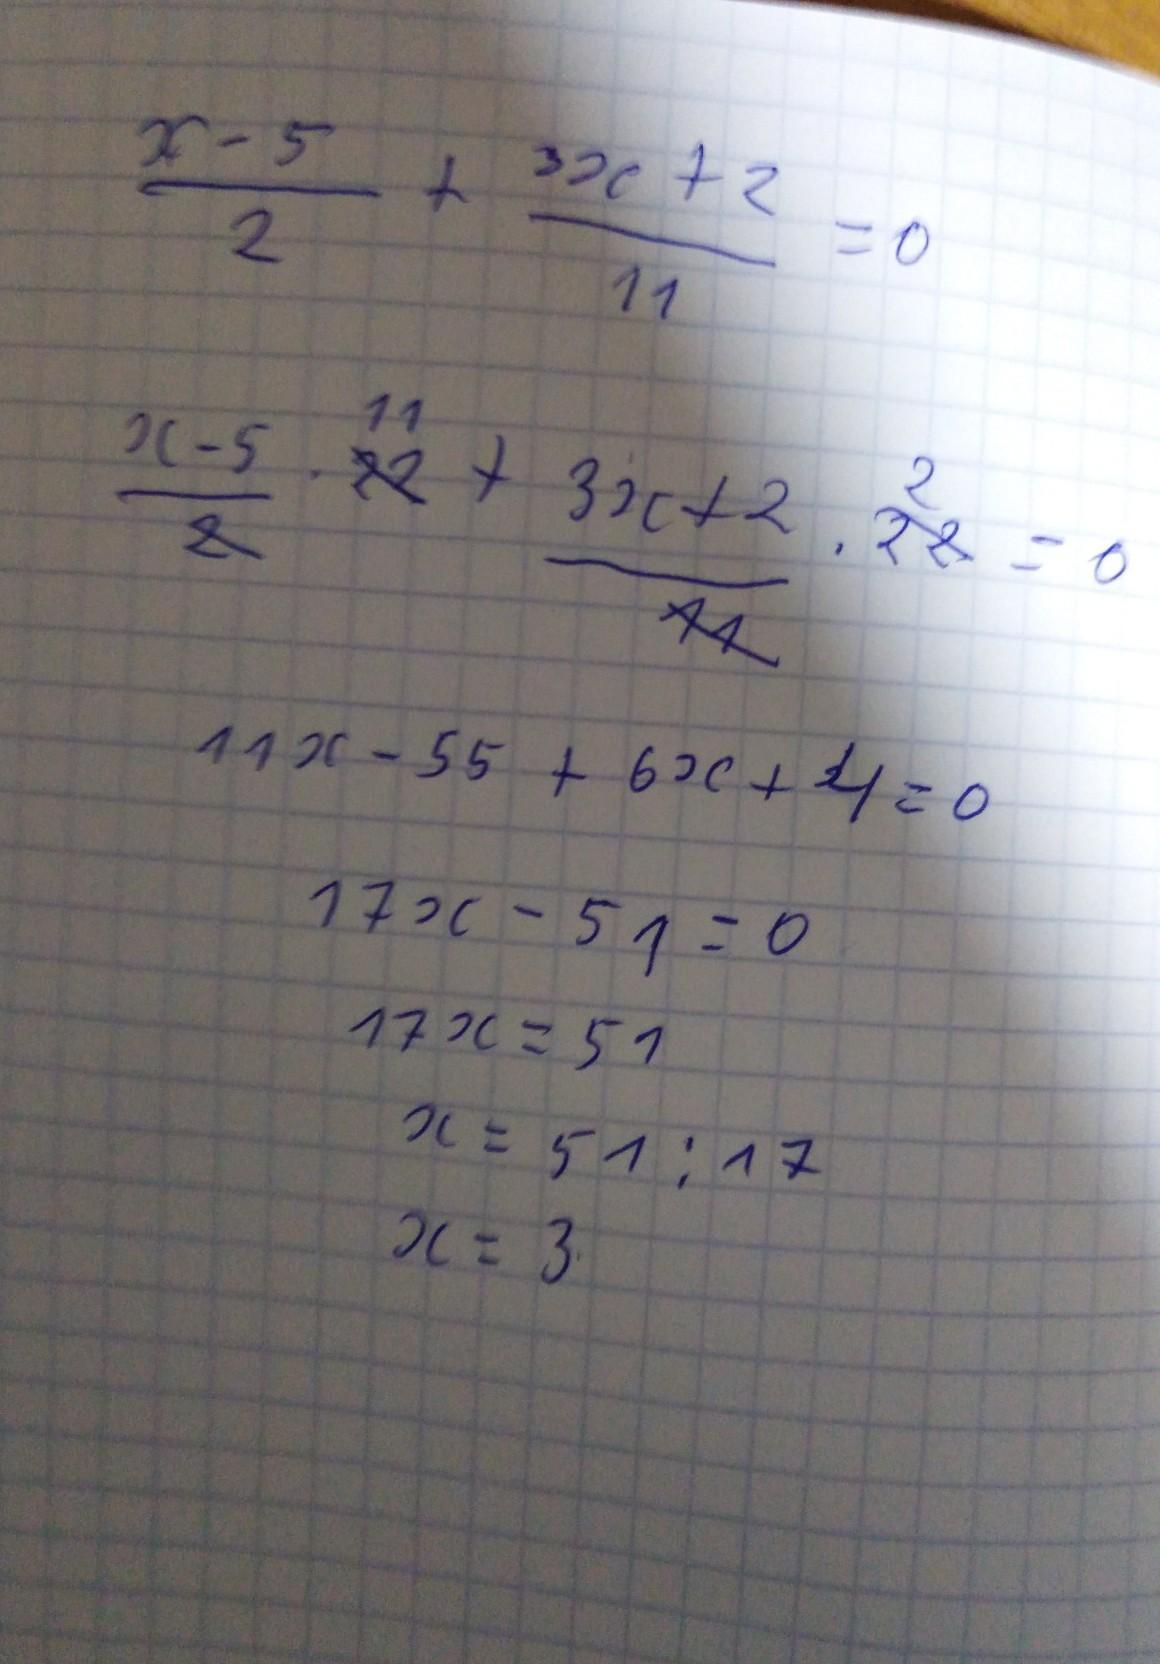 x - 5 / 2 + 3x + 2 / 11 = 0
x - 5 / 2 · 22 11 + 3x + 2 / 11 · 22 2 = 0
11x - 55 + 6x + 4 = 0
17x - 51 = 0
17x = 51
x = 51 : 17
x = 3